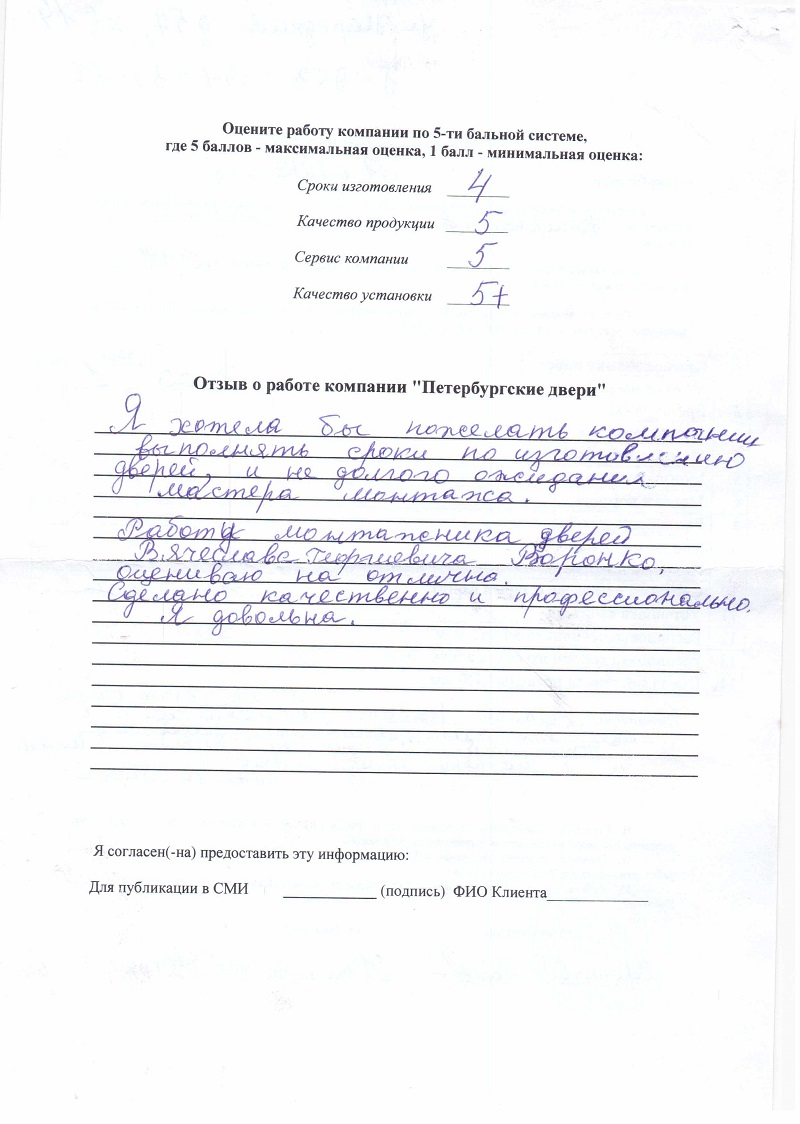 Оцените работу компании по 5-ти бальной системе,
где 5 баллов - максимальная оценка, 1 балл - минимальная оценка:
Сроки изготовления 4
Качество продукции 5
Сервис компании 5
Качество установки 5+
Отзыв о работе компании "Петербургские двери"
Я хотела бы пожелать компании
выполнять сроки по изготовлению
дверей, и не долгого ожидания
мастера монтажа.
Работу монтажника дверей
Вячеслава Георгиевича Воронко,
оцениваю на отлична.
Сделано качественно и профессионально.
Я довольна.
Я согласен(-на) предоставить эту информацию:
Для публикации в СМИ ____________ (подпись) ФИО Клиента_____________